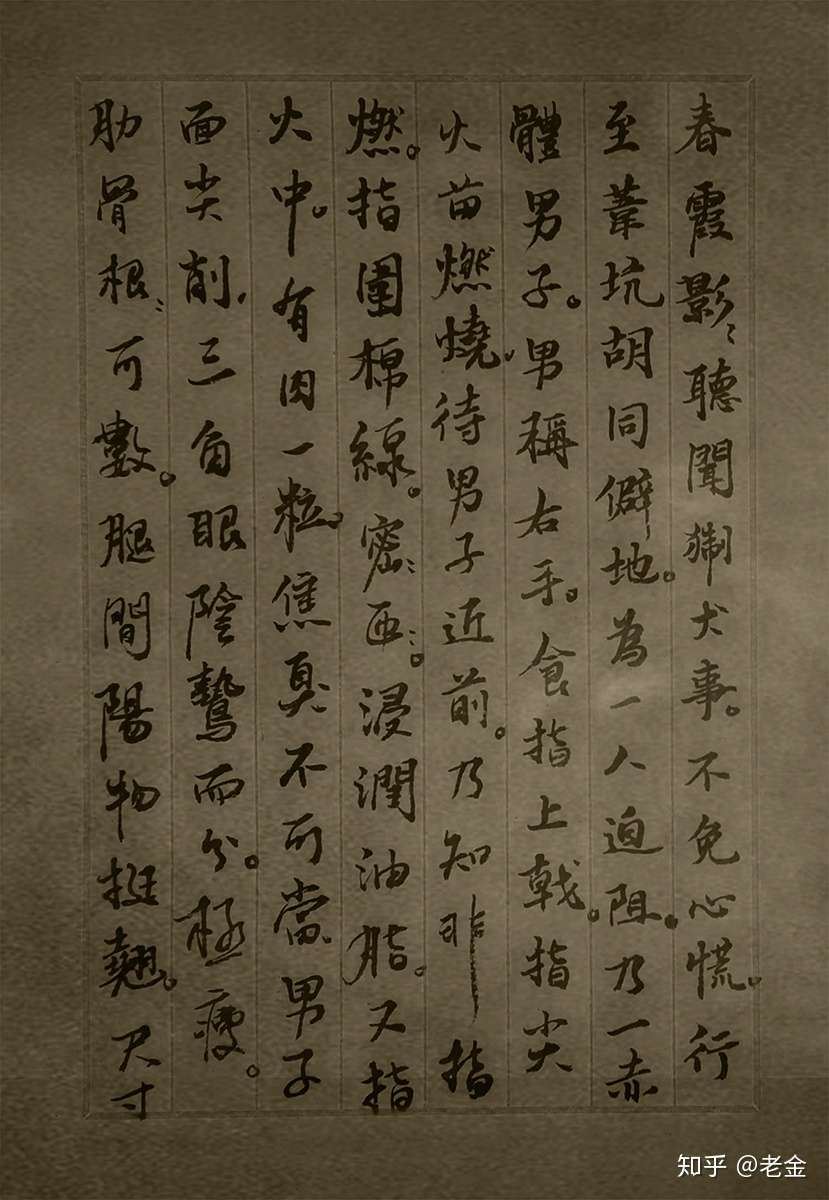 春霞影〻聽聞猘犬事。不免心慌。行
至葦坑胡同僻地。為一人迫阻。乃一赤
體男子。男稱右手。食指上戟。指尖
火苗燃燒，待男子近前。乃知非指
燃。指圍棉線。密〻匝〻。浸潤油脂。又指
火中。有肉一粒。焦臭不可當、男子
面尖削，三角眼陰鷙而分。極瘦。
肋骨根〻可數。腿間陽物挺翹。尺寸
知乎 @老金